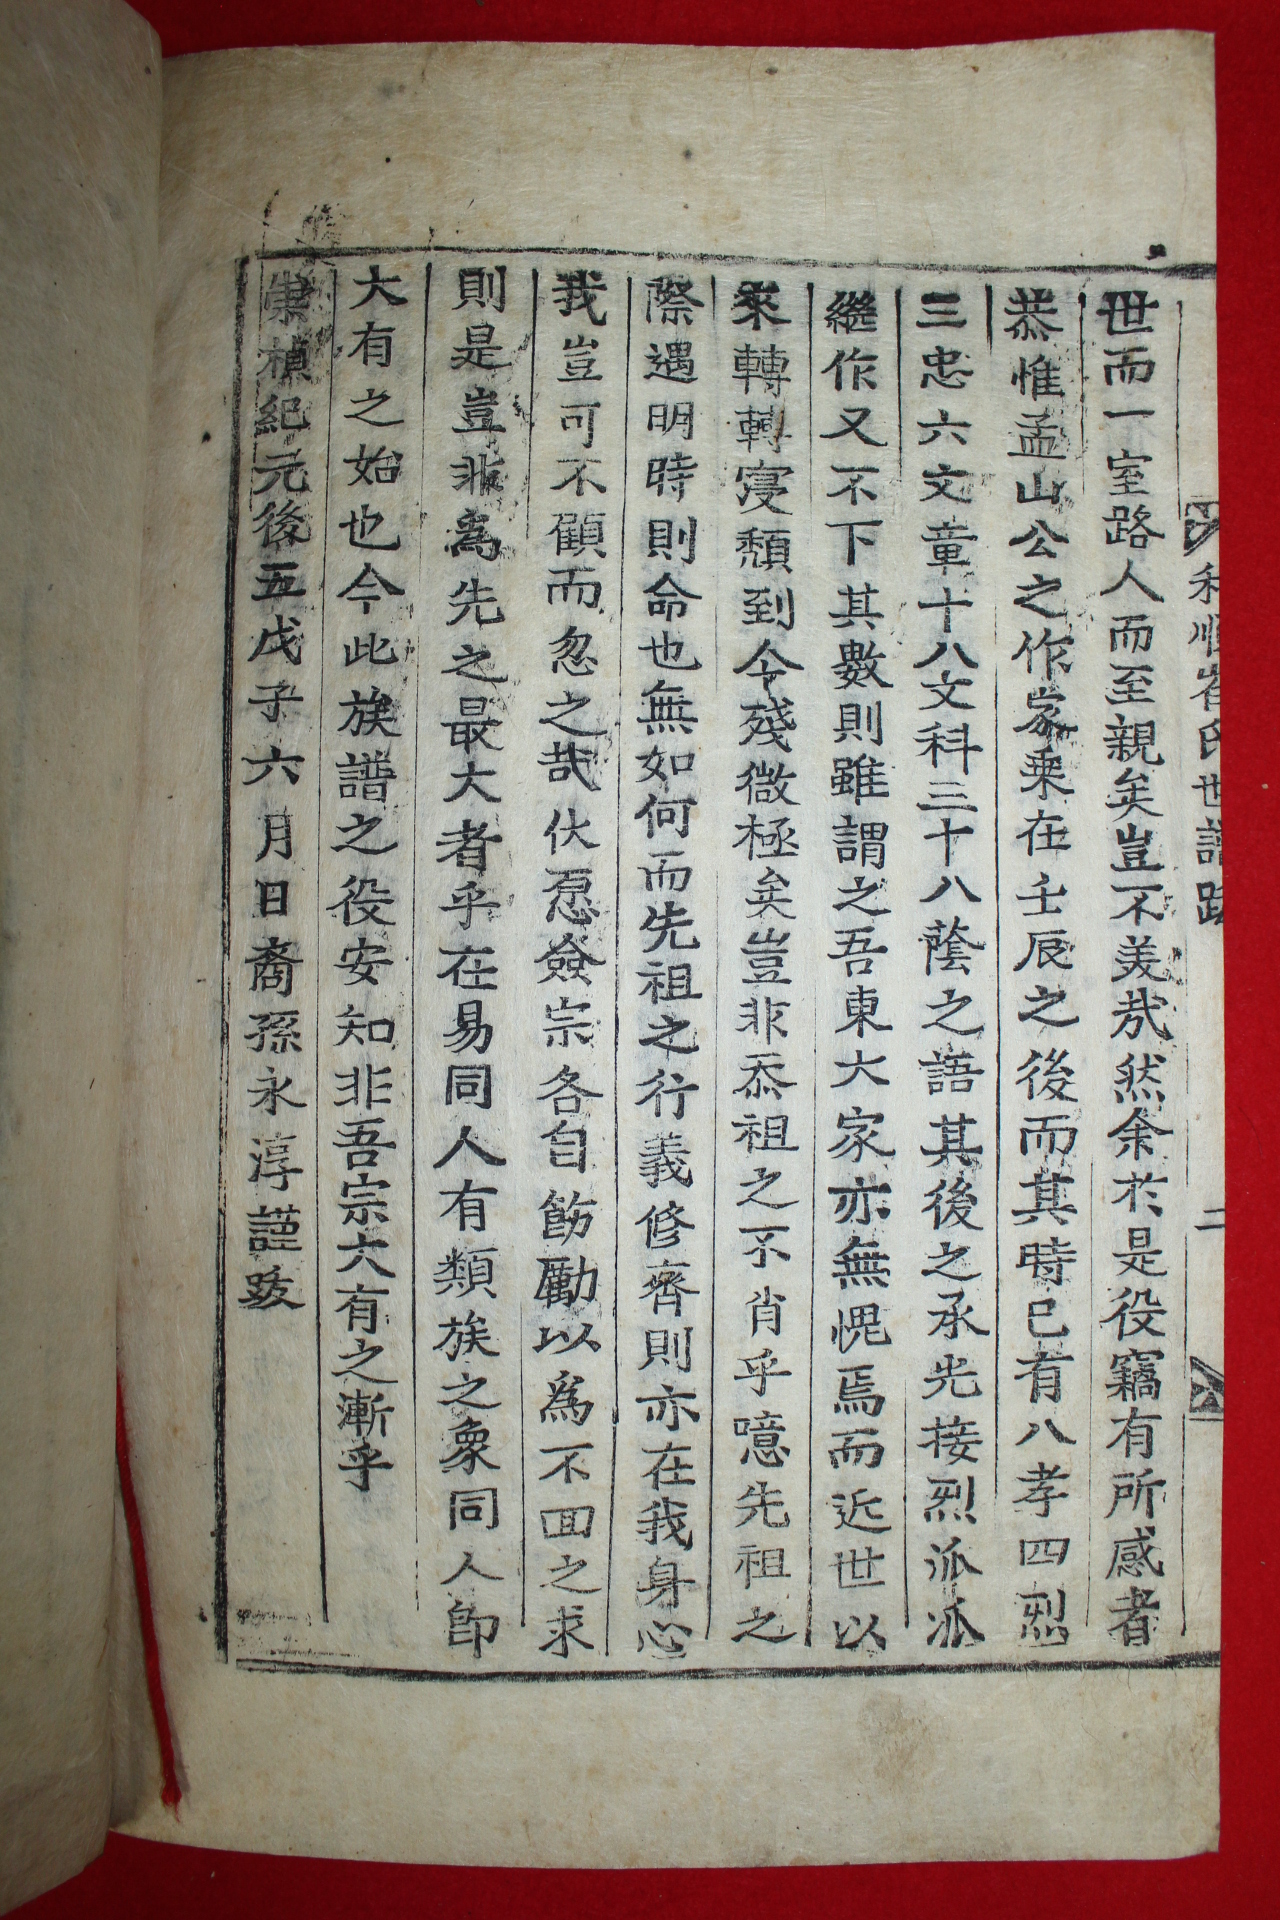 利順崔氏世譜跋
二
世而一室路人而至親矣豈不美哉然余於是役竊有所感者
恭惟孟山公之作家乘在壬辰之後而其時已有八孝四烈
三忠六文章十八文科三十八蔭之語其後之承先接烈派派
繼作又不下其數則雖謂之吾東大家亦無愧焉而近世以
來轉轉寖頹到今殘微極矣豈非忝祖之不肖乎噫先祖之
際遇明時則命也無如何而先祖之行義修齊則亦在我身心
我豈可不顧而忽之哉伏愿僉宗各自飭勵以爲不囬之求
則是豈非爲先之最大者乎在易同人有類族之象同人卽
大有之始也今此族譜之役安知非吾宗大有之漸乎
崇禎紀元後五戊子六月日裔孫永淳謹跋